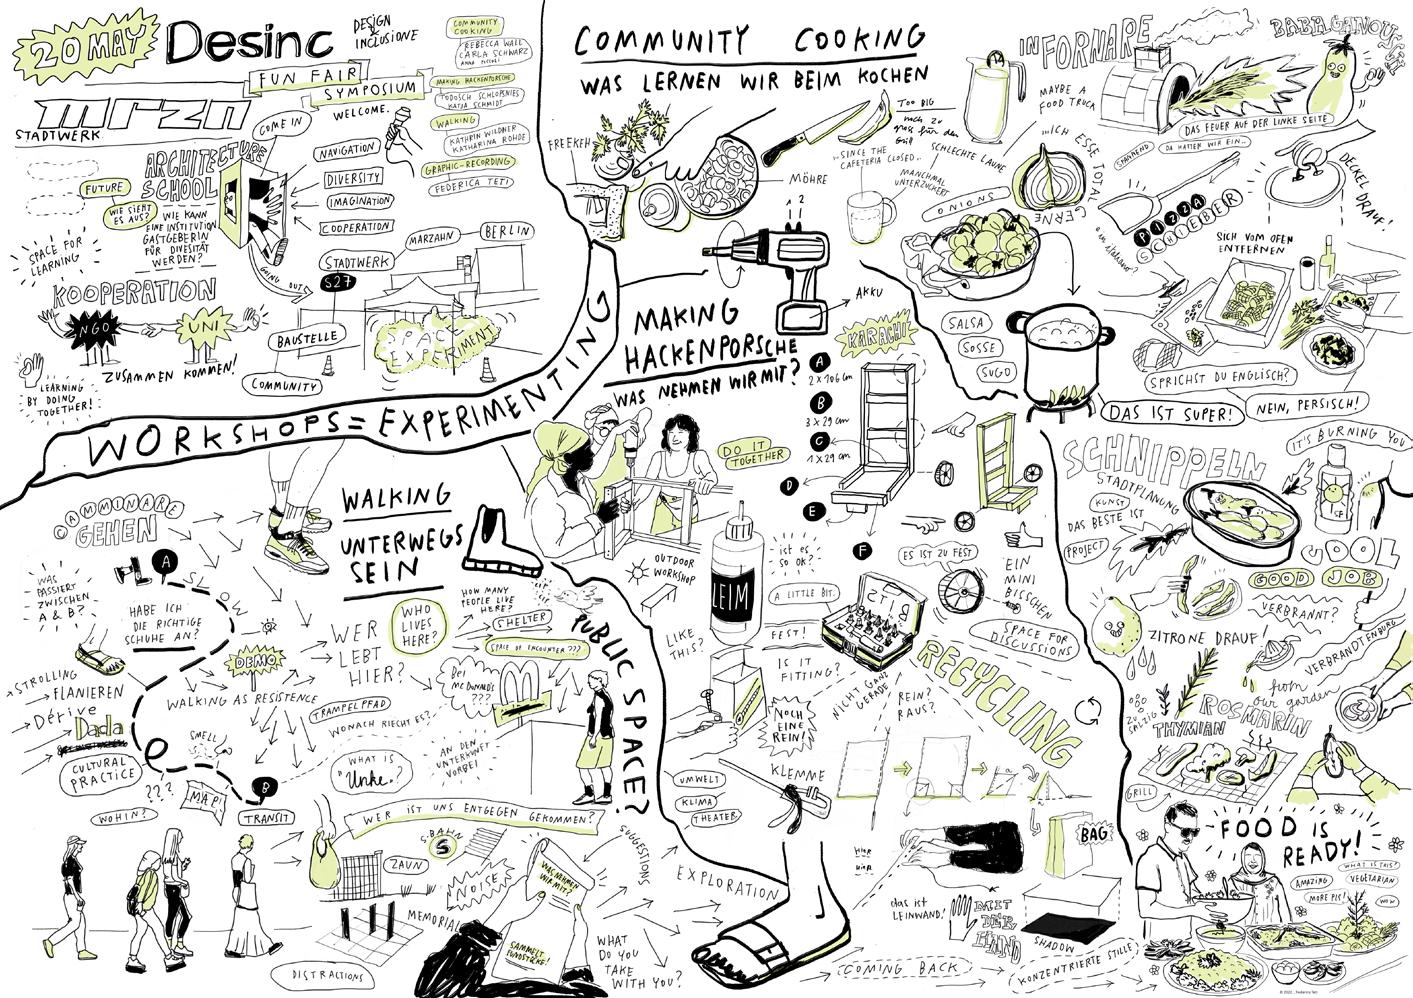 20 MAY
Desinc
DESIGN
& INCLUSIONE
FUN FAIR
SYMPOSIUM
WELCOME.
mrzn
STADTWERK
COMMUNITY
COOKING
REBECCA WALL
CARLA SCHWARZ
MAKING HACKENPORSCHE
TODOSCH SCHLOPSNIES
KATJA SCHMIDT
WALKING
KATHRIN WILDNER
KATHARINA ROHDE
GRAPHIC-RECORDING
FEDERICA TETI
COME IN
ARCHITECTURE
SCHOOL
NAVIGATION
DIVERSITY
IMAGINATION
COOPERATION
FUTURE
WIE SIEHT
ES AUS?
WIE KANN
EINE INSTITUTION
GASTGEBERIN
FÜR DIVESITÄT
WERDEN?
SPACE FOR
LEARNING
GOING OUT
MARZAHN
BERLIN
STADTWERK
S27
BAUSTELLE
COMMUNITY
SPACE
EXPERIMENT
KOOPERATION
NGO
UNI
ZUSAMMEN KOMMEN!
LEARNING
BY DOING
TOGETHER!
WORKSHOPS = EXPERIMENTING
COMMUNITY COOKING
WAS LERNEN WIR BEIM KOCHEN
FREEKEH
MÖHRE
TOO BIG
noch zu
gross für den
Grill
"SINCE THE
CAFETERIA CLOSED..
SCHLECHTE LAUNE
MANCHMAL
UNTERZUCKERT
ONIONS
...ICH ESSE TOTAL GERNE
IN FORNARE
MAYBE A
FOOD TRUCK
BABAGANOUSH
DAS FEUER AUF DER LINKE SEITE
SPANNEND
DA HATTEN WIR EIN...
PIZZA
SCHIEBER
in italiano?
DECKEL DRAUF!
SICH VOM OFEN
ENTFERNEN
SALSA
SOSSE
SUGO
SPRICHST DU ENGLISCH?
NEIN, PERSISCH!
DAS IST SUPER!
MAKING
HACKENPORSCHE
WAS NEHMEN WIR MIT?
1 2
AKKU
KARACHI
A
2 x 106 cm
B
3 x 29 cm
C
1 x 29 cm
D
E
F
DO IT
TOGETHER
OUTDOOR
WORKSHOP
LEIM
ist es
so OK?
A LITTLE BIT.
FEST!
LIKE
THIS?
IS IT
FITTING?
ES IST ZU FEST
EIN
MINI
BISSCHEN
SPACE FOR
DISCUSSIONS
NICHT GANZ
GERADE
REIN?
RAUS?
NOCH
EINE
REIN!
RECYCLING
KLEMME
UMWELT
KLIMA
THEATER
BAG
HIER
das ist
LEINWAND!
MIT
DER
HAND
SHADOW
KONZENTRIERTE STILLE
COMING BACK
EXPLORATION
SCHNIPPELN
STADTPLANUNG
KUNST
DAS BESTE IST
PROJECT
IT'S BURNING YOU
COOL
GOOD JOB
VERBRANNT?
ZITRONE DRAUF!
VERBRANDTENBURG
from
our garden
ZU
SALZIG
ROSMARIN
THYMIAN
GRILL
FOOD IS
READY!
WHAT IS THIS?
AMAZING
VEGETARIAN
MORE PLS!
WOW
CAMMINARE
GEHEN
WALKING
UNTERWEGS
SEIN
A
WAS
PASSIERT
ZWISCHEN
A & B?
SLOW
HABE ICH
DIE RICHTIGE
SCHUHE AN?
DEMO
WALKING AS RESISTENCE
STROLLING
FLANIEREN
Dérive
Dada
CULTURAL
PRACTICE
SMELL
???
MAP!
B
WOHIN?
TRANSIT
WER
LEBT
HIER?
WHO
LIVES
HERE?
HOW MANY
PEOPLE LIVE
HERE?
SHELTER
SPACE OF ENCOUNTER???
TRAMPELPFAD
WONACH RIECHT ES?
Bei
McDonald's
???
WHAT IS
"Unke"?
AN DER
UNTERKUNFT
VORBEI
WER IST UNS ENTGEGEN GEKOMMEN?
PUBLIC SPACE?
S-BAHN
S
ZAUN
NOISE
MEMORIAL
DISTRACTIONS
WAS NEHMEN
WIR MIT?
SAMMELT
FUNDSTÜCKE!
SUGGESTIONS
WHAT
DO YOU
TAKE
WITH YOU?
© 2022 , Federica Teti